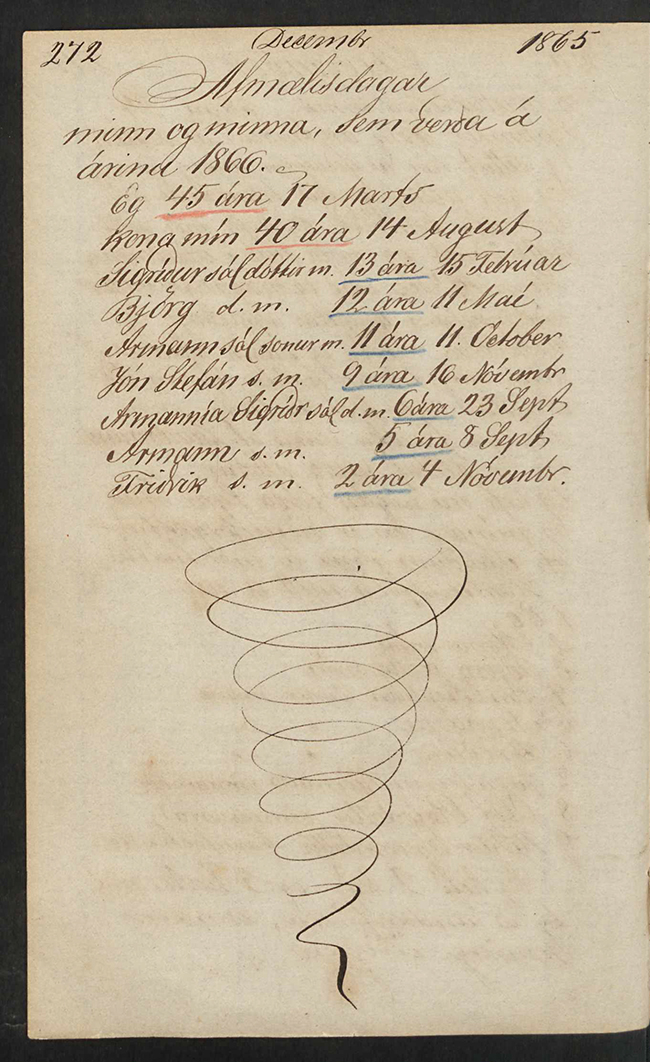 272 Decembr 1865
Afmælisdagar
minn og minna, sem verða á
árinu 1866.
Eg 45 ára 17 Marts
kona mín 40 ára 14 August
Sigríður sál dóttir m. 13 ára 15 Februar
Björg d. m. 12 ára 11 Mai
Armann sál sonur m. 11 ára 11. October
Jón Stefán s. m. 9 ára 16 Nóvembr
Armannía Sigríðr sál d. m. 6 ára 23 Sept
Armann s. m. 5 ára 8 Sept
Friðrik s. m. 2 ára 4 Nóvembr.